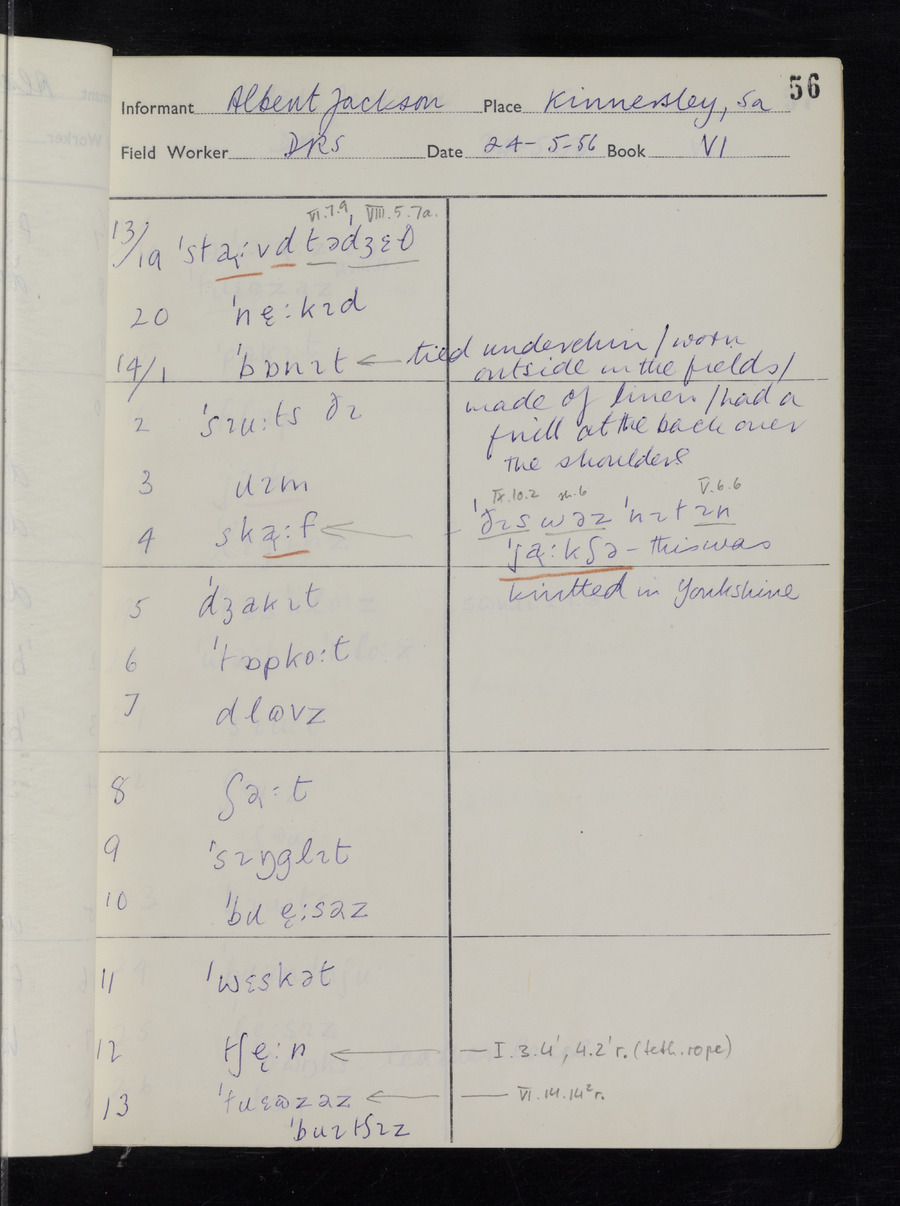 56
Informant Albert Jackson Place Kinnersley, Sa
Field Worker DRS Date 24-5-56 Book VI
VI.7.9, VIII.5.7a.
13/19 ˈstạːvd tədʒɛθ
20 ˈnẹːkɪd
14/1 ˈbɒnɪt ← tied underchin / worn
outside in the fields /
made of linen / had a
frill at the back over
the shoulders
2
3
4 skạːf ←
IX.10.2 V.6.6
ˈðɪs wəz ˈnɪt ɪn
ˈjạːkʃə – this was
knitted in Yorkshire
5 ˈdʒakɪt
6 ˈtɒpkoːt
7
8 ʃəːt
9 ˈsɪŋglɪt
10
11 ˈwɛskət
12 tʃẹːn ← I.3.4', 4.2' r. (teth. rope)
13 ← VI.14.14² r.